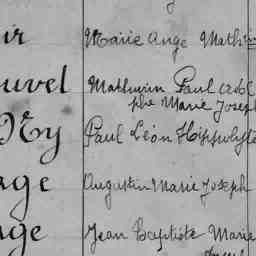 ir Marie Ange Math
uvel Mathurin Paul Adol
phe Marie Joseph
Ny Paul Léon Hippolyte
age Augustin Marie Joseph
ge Jean Baptiste Marie